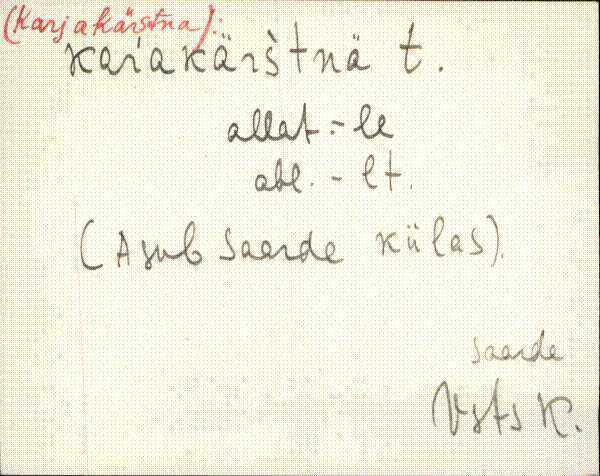 (Karjakärstna):
kaŕakäŕštnä t.
allat. -le
abl. - lt.
(Asub Saarde külas).
Saarde
Vsts K.